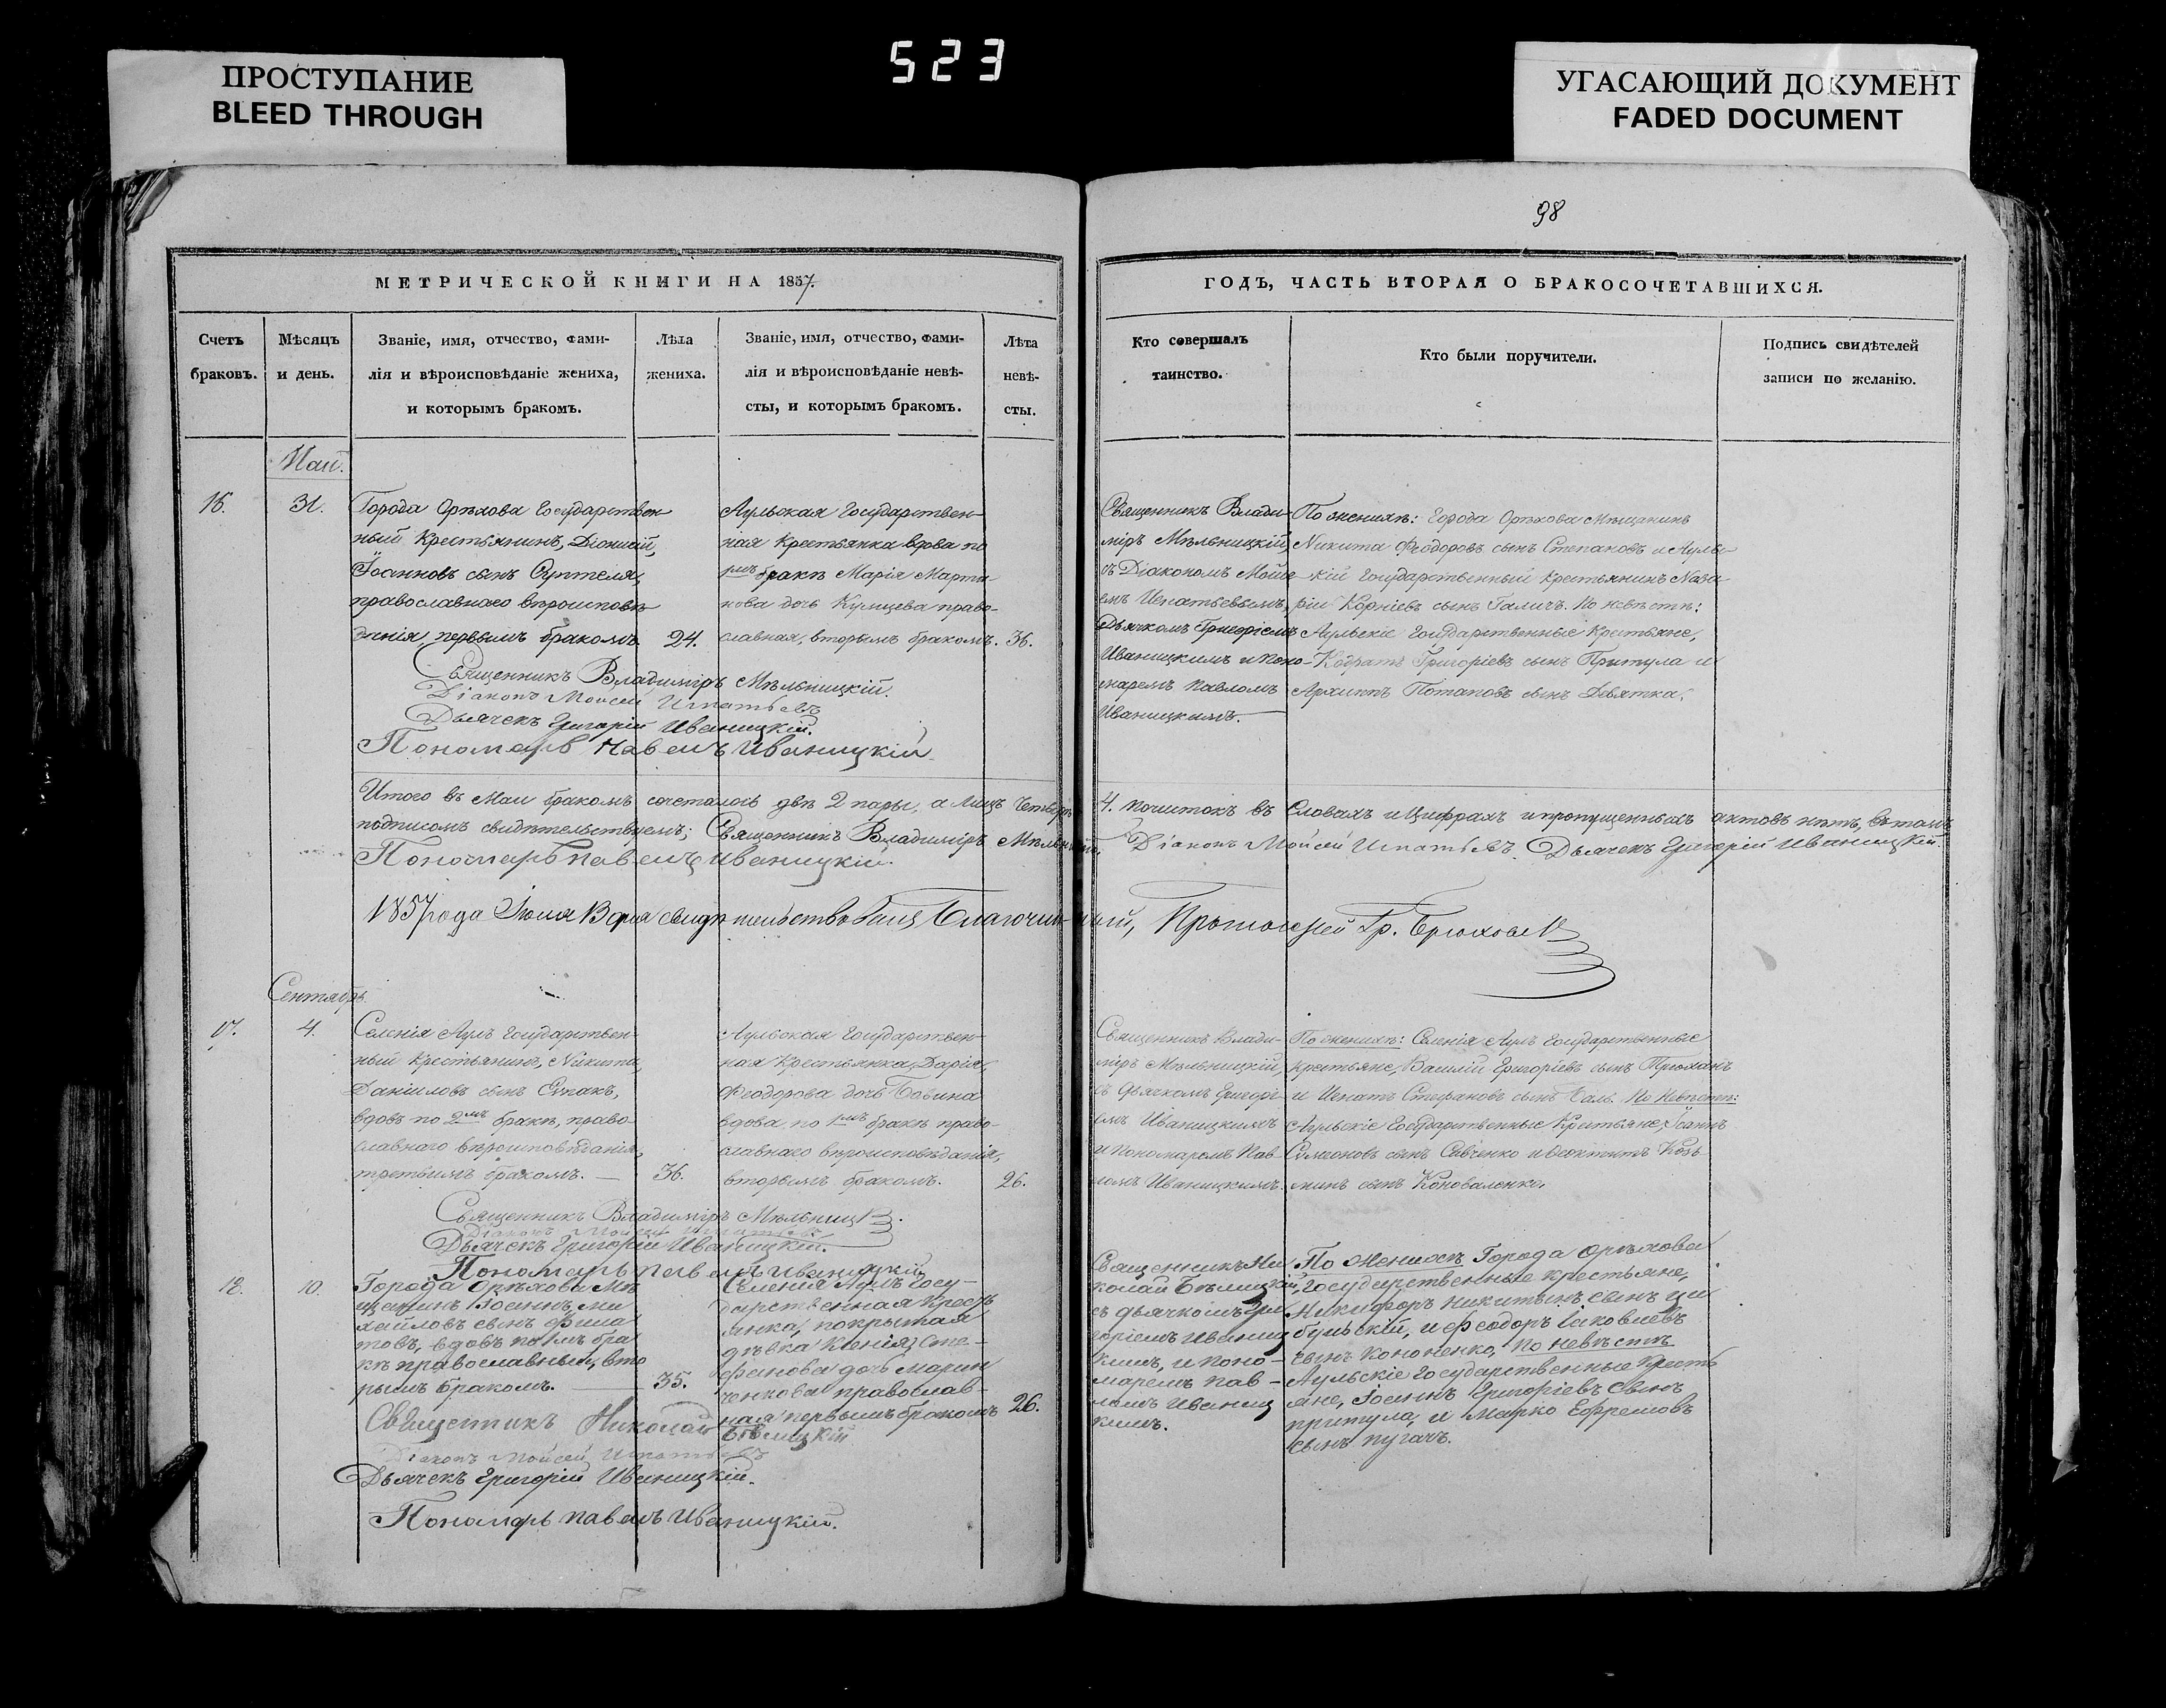 523
ПРОСТУПАНИЕ
BLEED THROUGH
УГАСАЮЩИЙ ДОКУМЕНТ
FADED DOCUMENT
98
МЕТРИЧЕСКОЙ КНИГИ НА 1857.
Счетъ браковъ.
Мѣсяцъ и день.
Званіе, имя, отчество, фами-
лія и вѣроисповѣданіе жениха,
и которымъ бракомъ.
Лѣта
жениха.
Званіе, имя, отчество, фами-
лія и вѣроисповѣданіе невѣ-
сты, и которымъ бракомъ.
Лѣта
невѣ-
сты.
ГОДЪ, ЧАСТЬ ВТОРАЯ О БРАКОСОЧЕТАВШИХСЯ.
Кто совершалъ
таинство.
Кто были поручители.
Подпись свидѣтелей
записи по желанію.
Маій.
16.
31.
Города Орѣхова Государствен-
ный Крестьянинъ, Діонисій,
Іоанновъ сынъ
православнаго вѣроисповѣ-
данія, первымъ бракомъ
24.
Аульская Государствен-
ная Крестьянка вдова по
1мъ бракѣ Марія Марти-
нова дочь право-
славная, вторымъ бракомъ.
36.
Священникъ Влади-
міръ Мѣльницкій,
съ Діакономъ Моѵсе-
емъ Игнатьевымъ,
Дьячкомъ Григоріемъ
Иваницкимъ и Поно-
маремъ Павломъ
Иваницкимъ.
По женихѣ: Города Орѣхова Мѣщанинъ
Никита Ѳеодоровъ сынъ Степановъ и Ауль-
кій Государственный Крестьянинъ Наза-
рій Корніевъ сынъ Галичъ. По невѣстѣ:
Аульскіе Государственные Крестьяне,
Кодратъ Григоріевъ сынъ Притула и
Архиппъ Потаповъ сынъ Девятка.
Священникъ Владиміръ Мѣльницкій.
Діаконъ Моисей Игнатьевъ
Дьячекъ Григорій Иваницкій.
Пономарь Павелъ Иваницкій.
Итого въ Маи бракомъ сочеталось двѣ 2 пары, а лицъ четверо 4. почистокъ въ словахъ и цифрахъ и пропущенныхъ актовъ нѣтъ, въ томъ
подписомъ свидѣтельствуемъ; Священникъ Владиміръ Мѣльницкій. Діаконъ Мойсей Игнатьевъ. Дьячекъ Григорій Иваницкій.
Пономарь Павелъ Иваницкій.
1857 года Іюля свидѣтельствовалъ Благочинный, Протоіерей Гр.
Сентябрь
17.
4.
Селенія Аулъ Государствен-
ный Крестьянинъ, Никита,
Даниловъ сынъ Супакъ,
вдовъ по 2мъ бракѣ, право-
славнаго вѣроисповѣданія,
третьимъ бракомъ.
36.
Аульская Государствен-
ная Крестьянка, Дарія,
Ѳеодорова дочь Бабина
вдова по 1мъ бракѣ право-
славнаго вѣроисповѣданія,
вторымъ бракомъ.
26.
Священникъ Влади-
міръ Мѣльницкій,
съ Дьячкомъ Григорі-
емъ Иваницкимъ
и Пономаремъ Пав-
ломъ Иваницкимъ.
По женихѣ: Селенія Аулъ Государственные
крестьяне, Василій Григоріевъ сынъ
и Игнатъ Стефановъ сынъ По Невѣстѣ:
Аульскіе Государственные Крестьяне, Іоаннъ
Симеоновъ сынъ Савченко и Ѳеоктистъ Козь-
минъ сынъ Коноваленко.
Священникъ Владиміръ Мѣльницкій.
Діаконъ Мойсей Игнатьевъ
Дьячекъ Григорій Иваницкій.
Пономарь Павелъ Иваницкій
18.
10.
Города Орѣхова Мѣ
щанинъ Іоаннъ Ми
хайловъ сынъ Фила
товъ, вдовъ по 1мъ бра
кѣ православный, вто
рымъ бракомъ.
35.
Селенія Аулъ Госу-
дарственная Кресть
янка, покрытая
дѣвка Ксенія Сте-
фанова дочь Марин
ченкова православ-
ная первымъ бракомъ
26.
Священникъ Ни
колай Бѣлицкій,
съ дьячкомъ Гри
горіемъ Иваниц
кимъ, и поно-
маремъ Пав-
ломъ Иваниц
кимъ.
По Женихѣ Города Орѣхова
Государственные крестьяне,
Никифоръ Никитинъ сынъ Ци
бульскій, и Ѳеодоръ Іаковлевъ
сынъ Кононенко, По невѣстѣ
Аульскіе Государственные Кресть
яне, Іоаннъ Григоріевъ сынъ
притула, и Марко Ефремовъ
сынъ пугачъ.
Священникъ Николай Бѣлицкій
Діаконъ Мойсей Игнатьевъ
Дьячекъ Григорій Иваницкій.
Пономарь Павелъ Иваницкій.